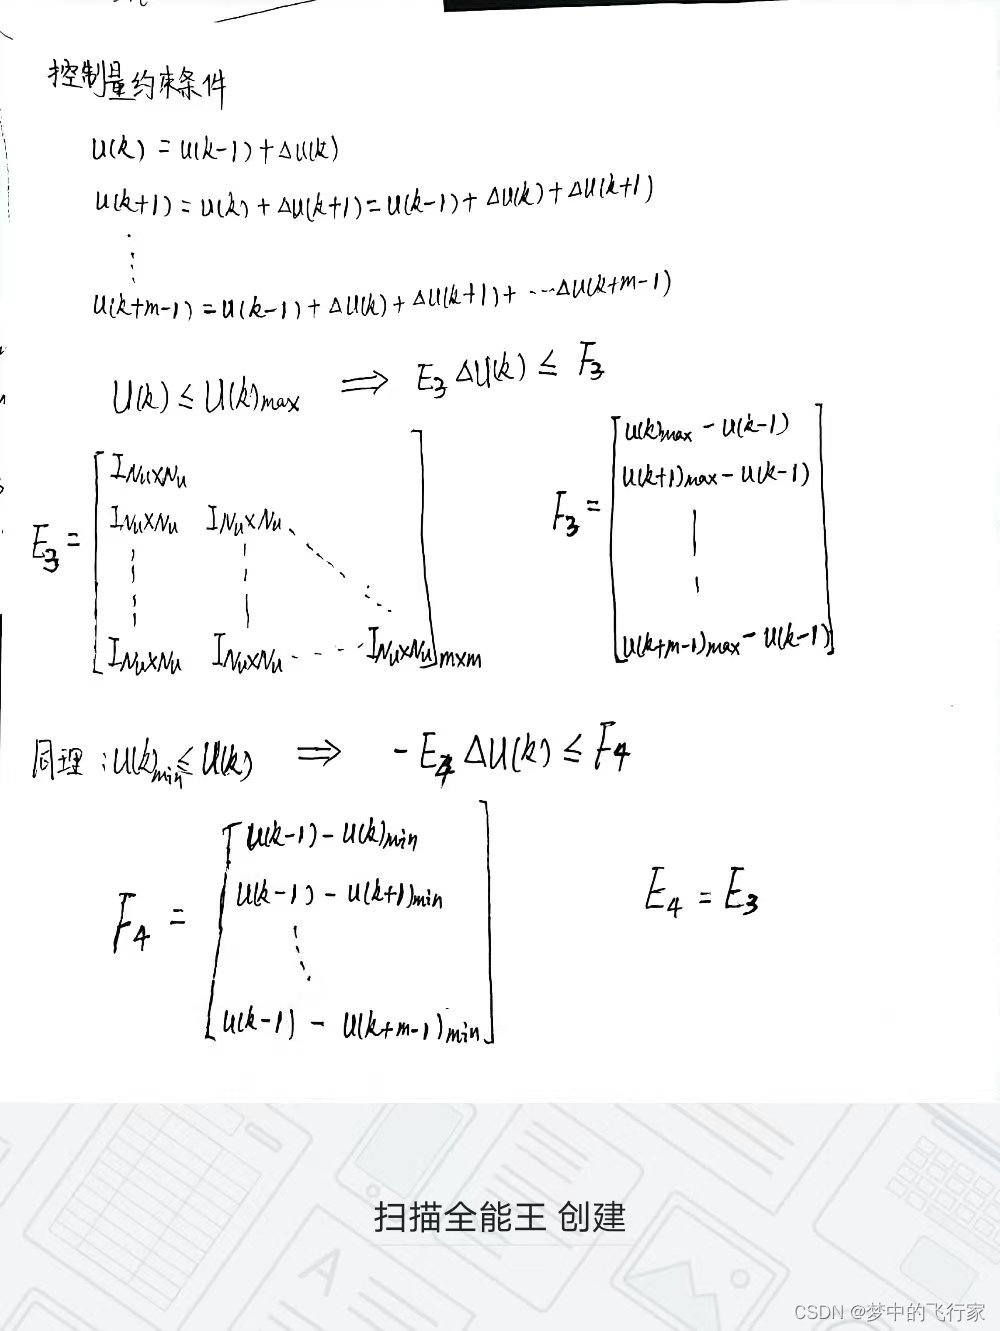 控制量约束条件
U(k) = U(k-1) + ΔU(k)
U(k+1) = U(k) + ΔU(k+1) = U(k-1) + ΔU(k) + ΔU(k+1)
U(k+m-1) = U(k-1) + ΔU(k) + ΔU(k+1) + ···ΔU(k+m-1)
U(k) ≤ U(k)max ⟹ E3 ΔU(k) ≤ F3
E3 = [
INu×Nu
INu×Nu INu×Nu
INu×Nu INu×Nu ····· INu×Nu ]m×m
F3 = [
U(k)max - U(k-1)
U(k+1)max - U(k-1)
U(k+m-1)max - U(k-1) ]
同理:U(k)min ≤ U(k) ⟹ -E4 ΔU(k) ≤ F4
F4 = [
U(k-1) - U(k)min
U(k-1) - U(k+1)min
U(k-1) - U(k+m-1)min ]
E4 = E3
扫描全能王 创建
CSDN @梦中的飞行家